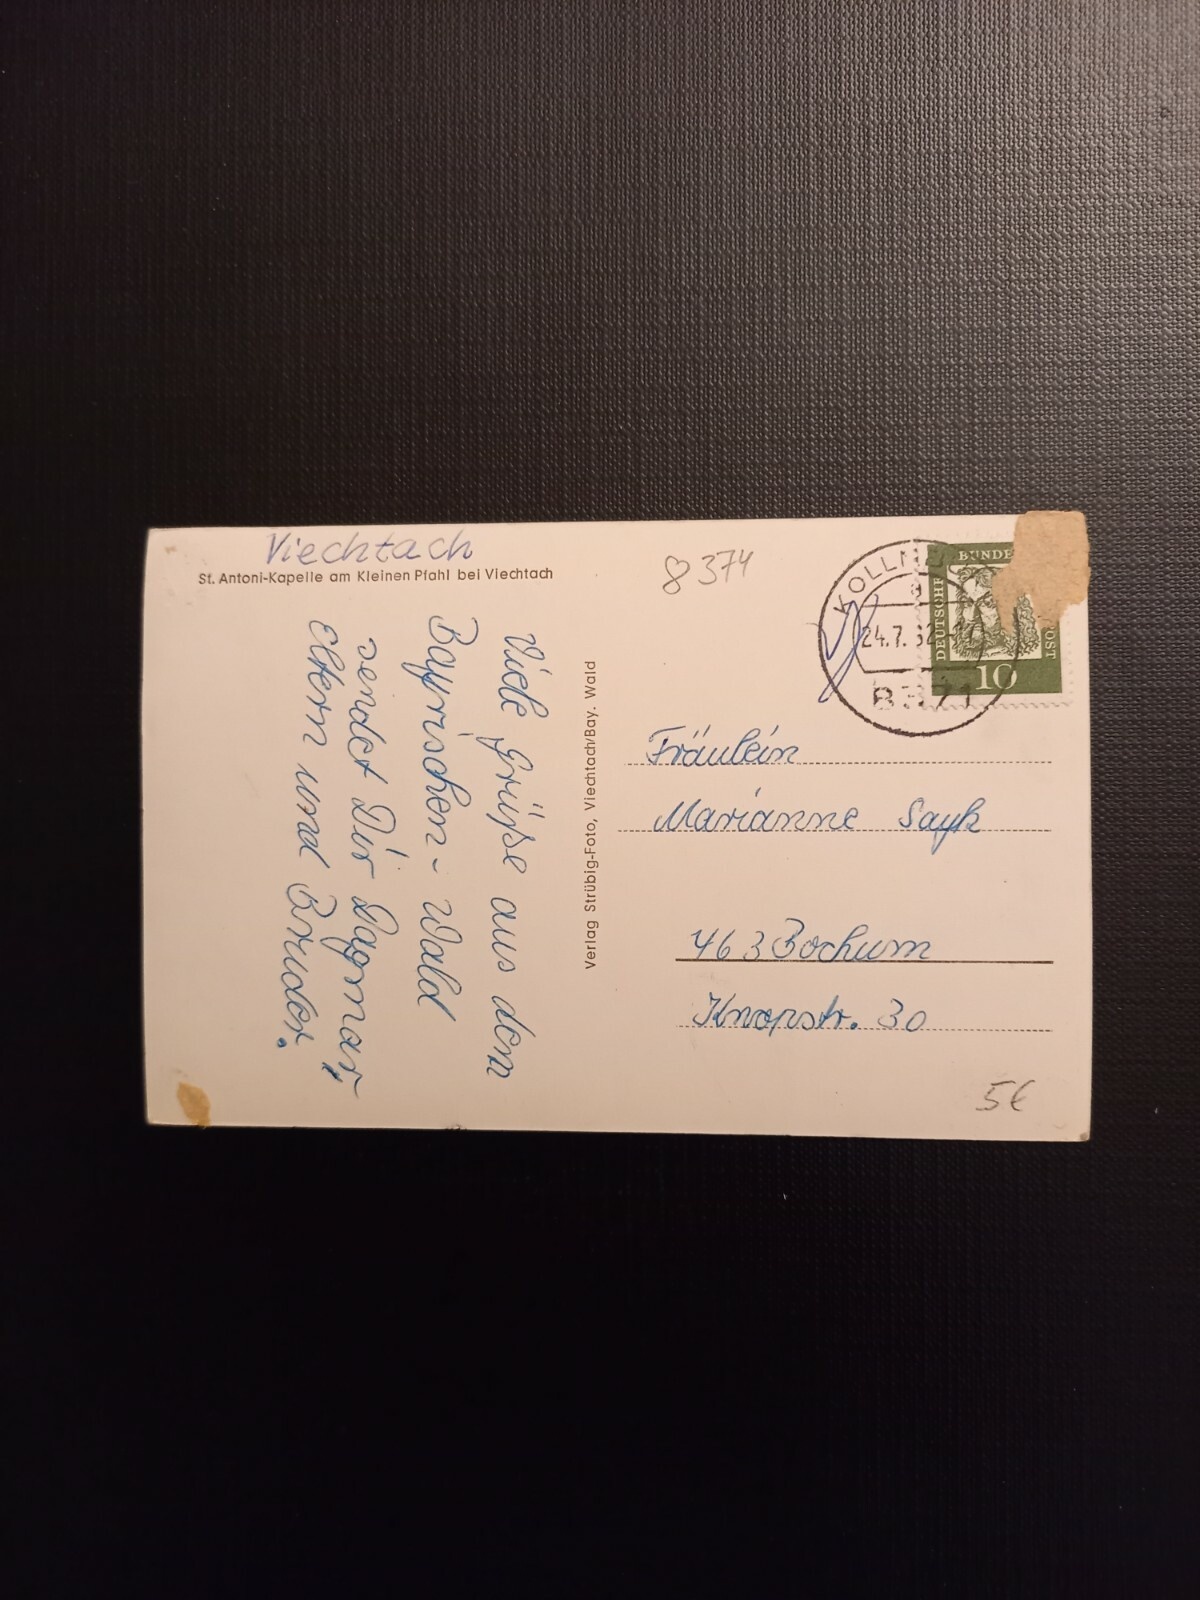 Viechtach
St. Antoni-Kapelle am Kleinen Pfahl bei Viechtach
Viele Grüße aus dem
Bayrischen-Wald
sendet Dir Dagmar,
Eltern und Bruder.
Verlag Strübig-Foto, Viechtach/Bay. Wald
8374
KOLLN
a
24.7.62
8371
DEUTSCHE BUNDE
OST
10
Fräulein
Marianne Sayk
463 Bochum
30
5€